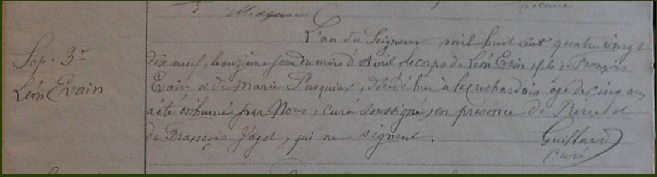 Sep. 3e
Léon Evain
L'an du Seigneur mil huit cent quatre vingt
dix neuf, le onzième jour du mois d'Avril le corps de Léon Evain fils de François
Evain et de Marie Pasquier, décédé hier à âgé de cinq ans
a été inhumé par Nous, curé soussigné, en présence de Pierre et
de François Jagot, qui ne signent.
Guillard
curé